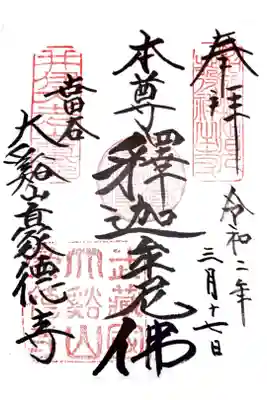 奉拝
令和二年
三月十七日
本尊
釋迦牟尼佛
世田谷
大谿山豪德寺
武藏國
大谿山